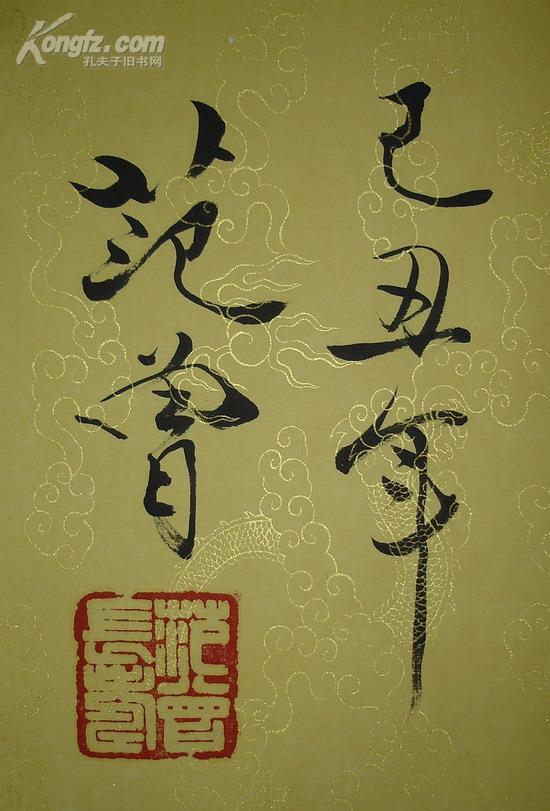 Kongfz.com
孔夫子旧书网
己丑年
范曾
范曾
長壽